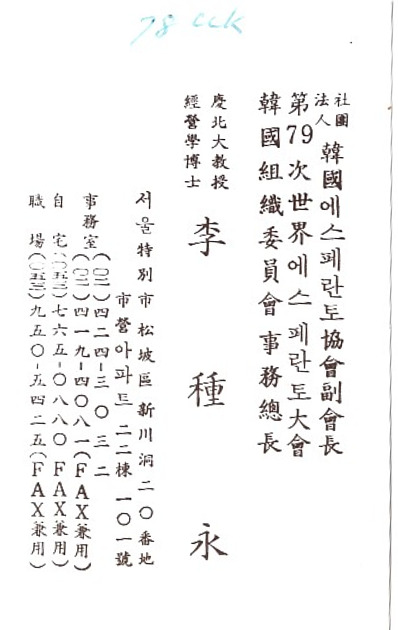 社團法人 韓國에스페란토協會副會長
第79次世界에스페란토大會
韓國組織委員會 事務總長
慶北大教授
經營學博士
李 種 永
서울特別市 松坡區 新川洞 二〇番地
市營아파트 二二棟 一〇一號
事務室 (〇二)四二四-三〇三二
(〇二)四一九-四〇八一(FAX兼用)
自宅 (〇五三)七六五-〇八八〇(FAX兼用)
職場 (〇五三)九五〇-五四二五(FAX兼用)